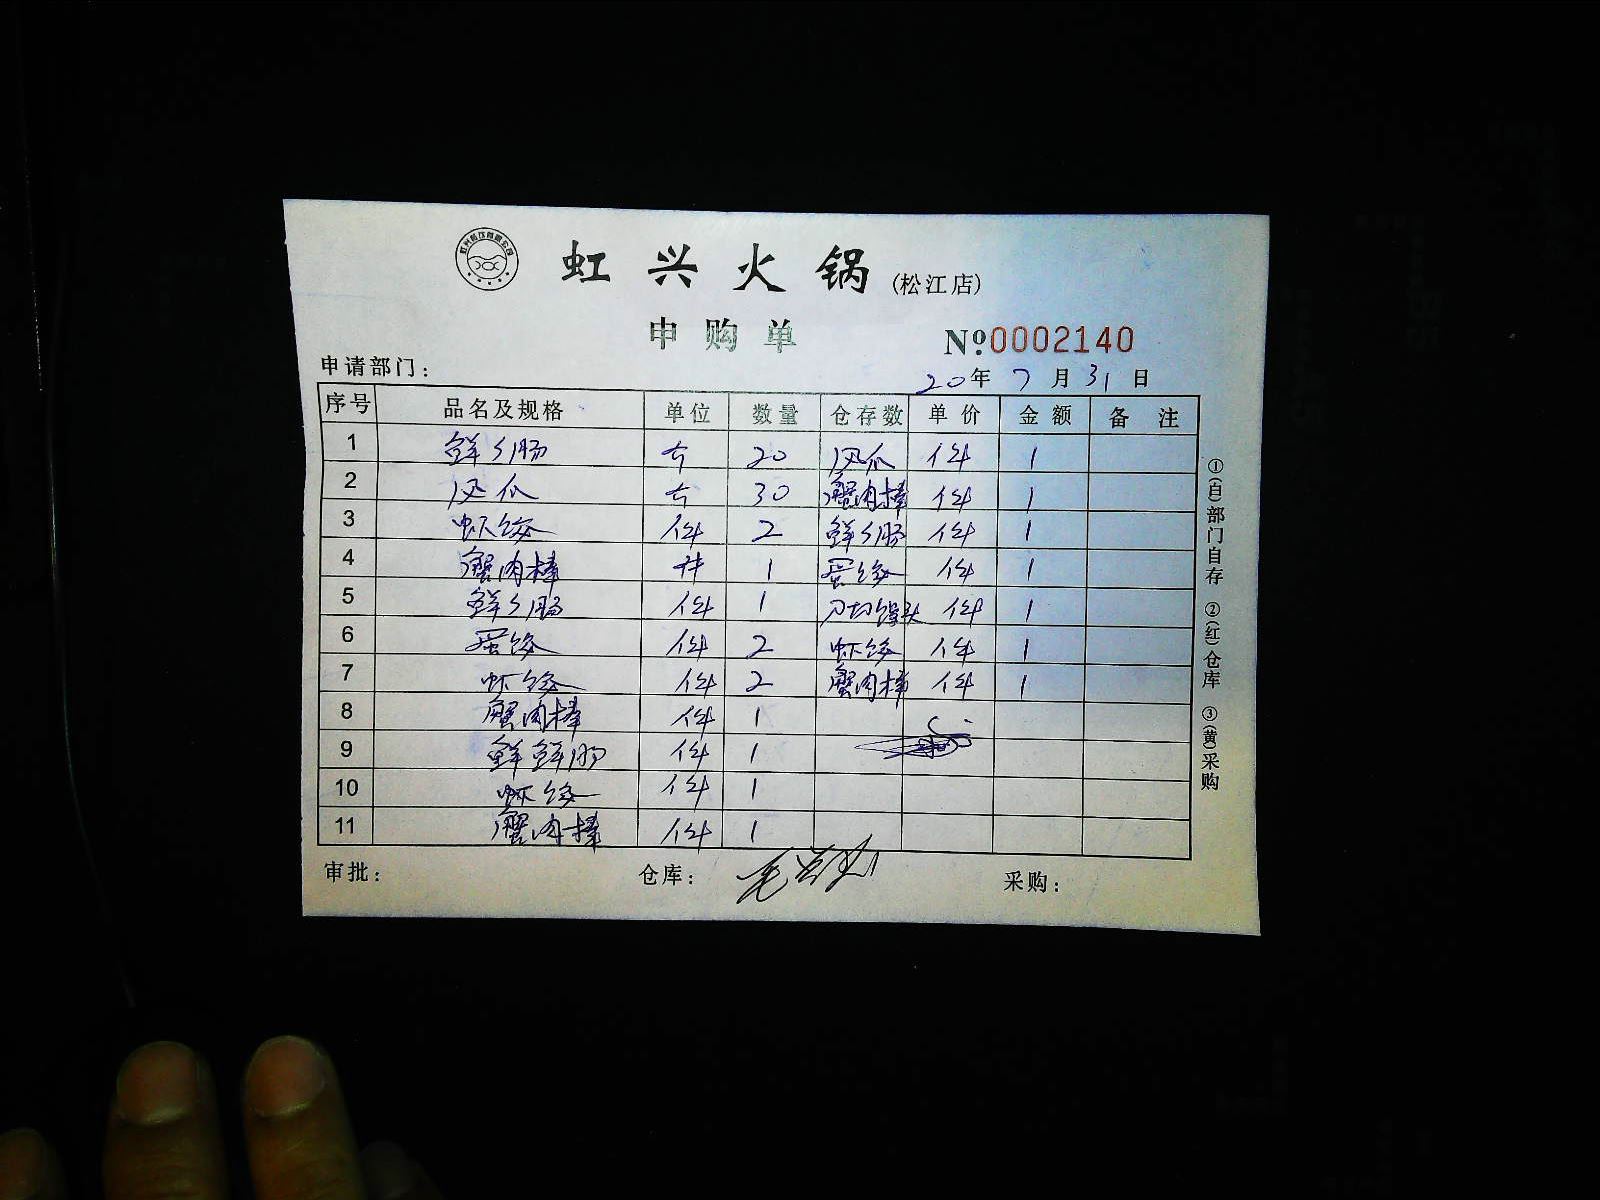 虹兴火锅 (松江店)
申购单 №0002140
申请部门: 20年 7月 31日
序号 品名及规格 单位 数量 仓存数 单价 金额 备注
1 20 风爪 件 1
2 风爪 30 蟹肉棒 件 1
3 虾饺 件 2 件 1
4 蟹肉棒 件 1 蛋饺 件 1
5 件 1 刀切馒头 件 1
6 蛋饺 件 2 虾饺 件 1
7 虾饺 件 2 蟹肉棒 件 1
8 蟹肉棒 件 1
9 件 1
10 虾饺 件 1
11 蟹肉棒 件 1
审批: 仓库: 采购:
①(白)部门自存 ②(红)仓库 ③(黄)采购